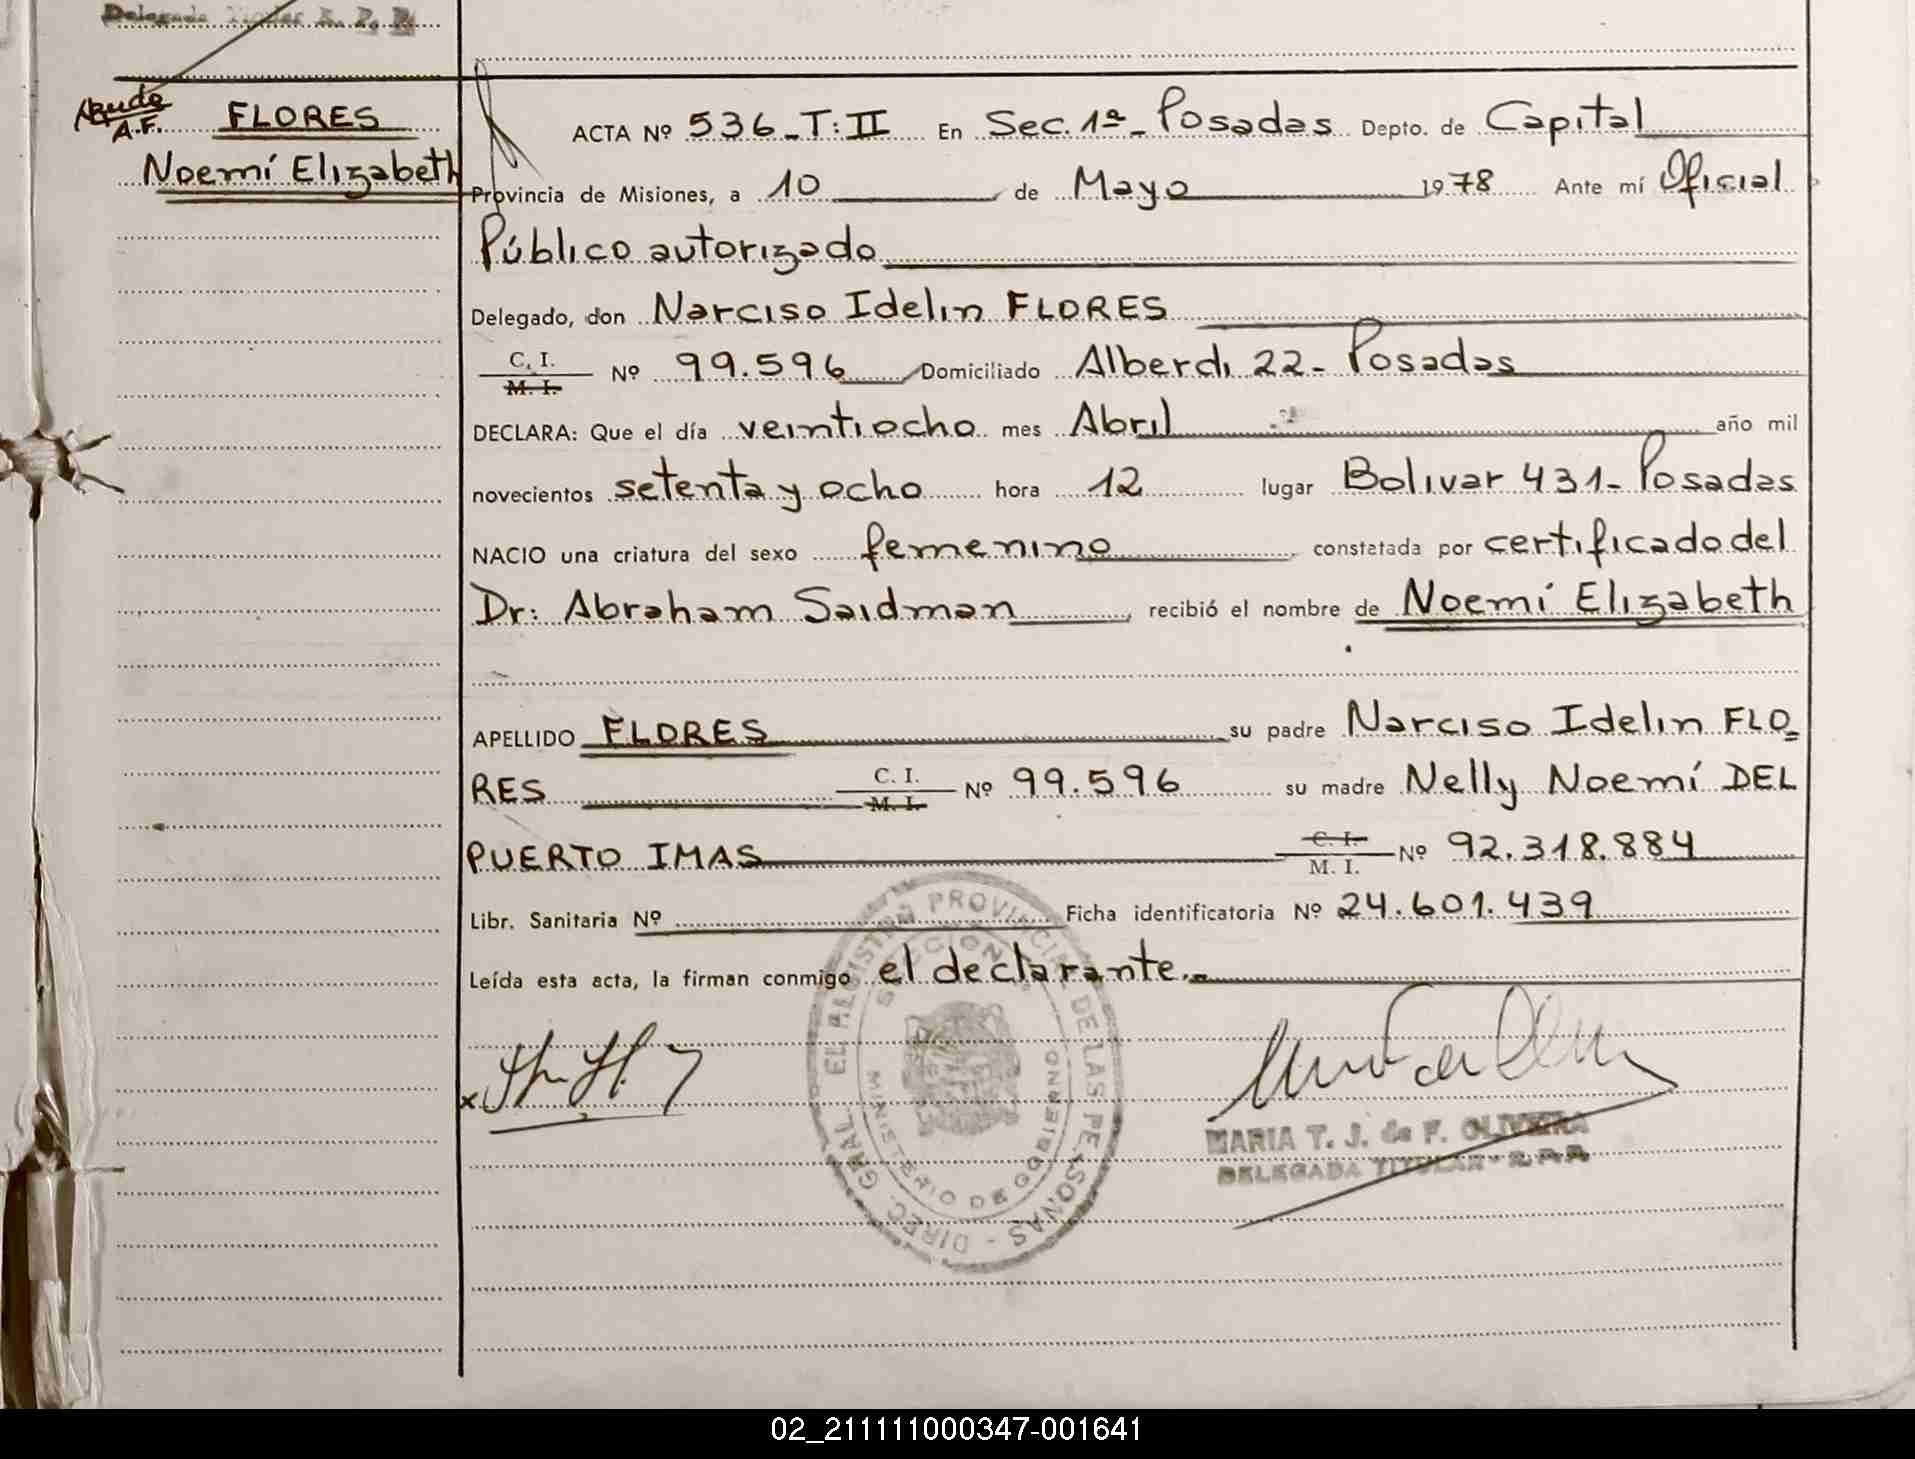 Delegada Titular R. P. P.
Ayuda
A.F.
FLORES
Noemí Elizabeth
ACTA Nº 536-T:II En Sec. 1ª- Posadas Depto. de Capital
Provincia de Misiones, a 10 de Mayo 1978 Ante mí Oficial
Público autorizado
Delegado, don Narciso Idelin FLORES
C. I.
M. I.
Nº 99.596 Domiciliado Alberdi 22- Posadas
DECLARA: Que el día veintiocho mes Abril año mil
novecientos setenta y ocho hora 12 lugar Bolivar 431- Posadas
NACIO una criatura del sexo femenino constatada por certificado del
Dr: Abraham Saidman, recibió el nombre de Noemí Elizabeth
APELLIDO FLORES su padre Narciso Idelin FLO-
RES C. I. M. I. Nº 99.596 su madre Nelly Noemí DEL
PUERTO IMAS C. I. M. I. Nº 92.318.884
Libr. Sanitaria Nº Ficha identificatoria Nº 24.601.439
Leída esta acta, la firman conmigo el declarante.-
DIREC. GRAL DEL REGISTRO PROVINCIAL DE LAS PERSONAS
SECCION
MINISTERIO DE GOBIERNO
MARIA T. J. de F. OLIVERA
DELEGADA TITULAR - R.P.P.
02_211111000347-001641